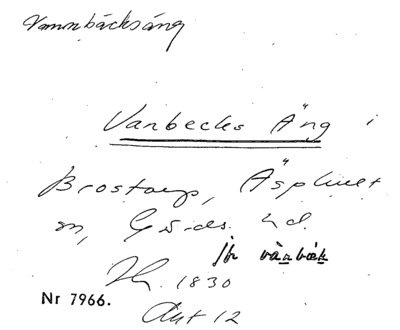 Vannbäcksäng
Vanbecks Äng i
Brostorp, Äsphult
sn, Gärds hd.
jfr vànbäk
1830
Nr 7966.
Akt 12